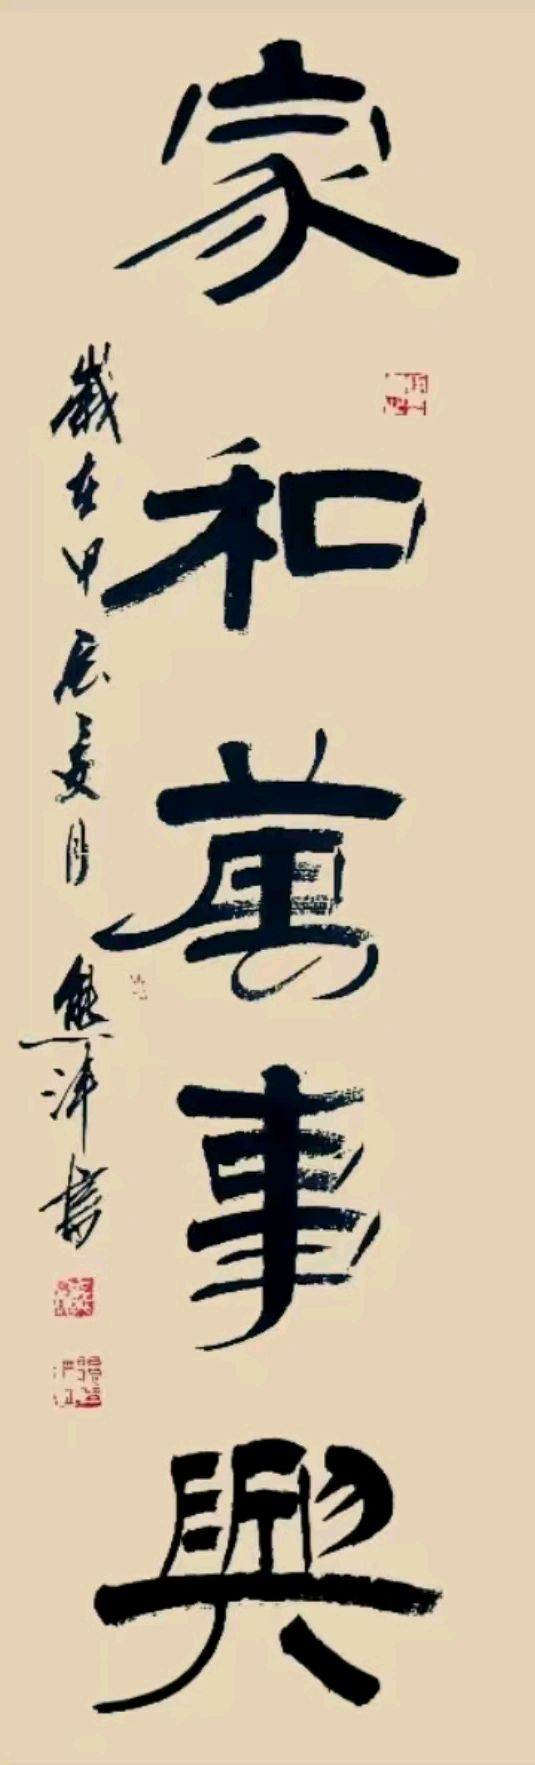 家和萬事興
歲在甲辰夏月 熊沣